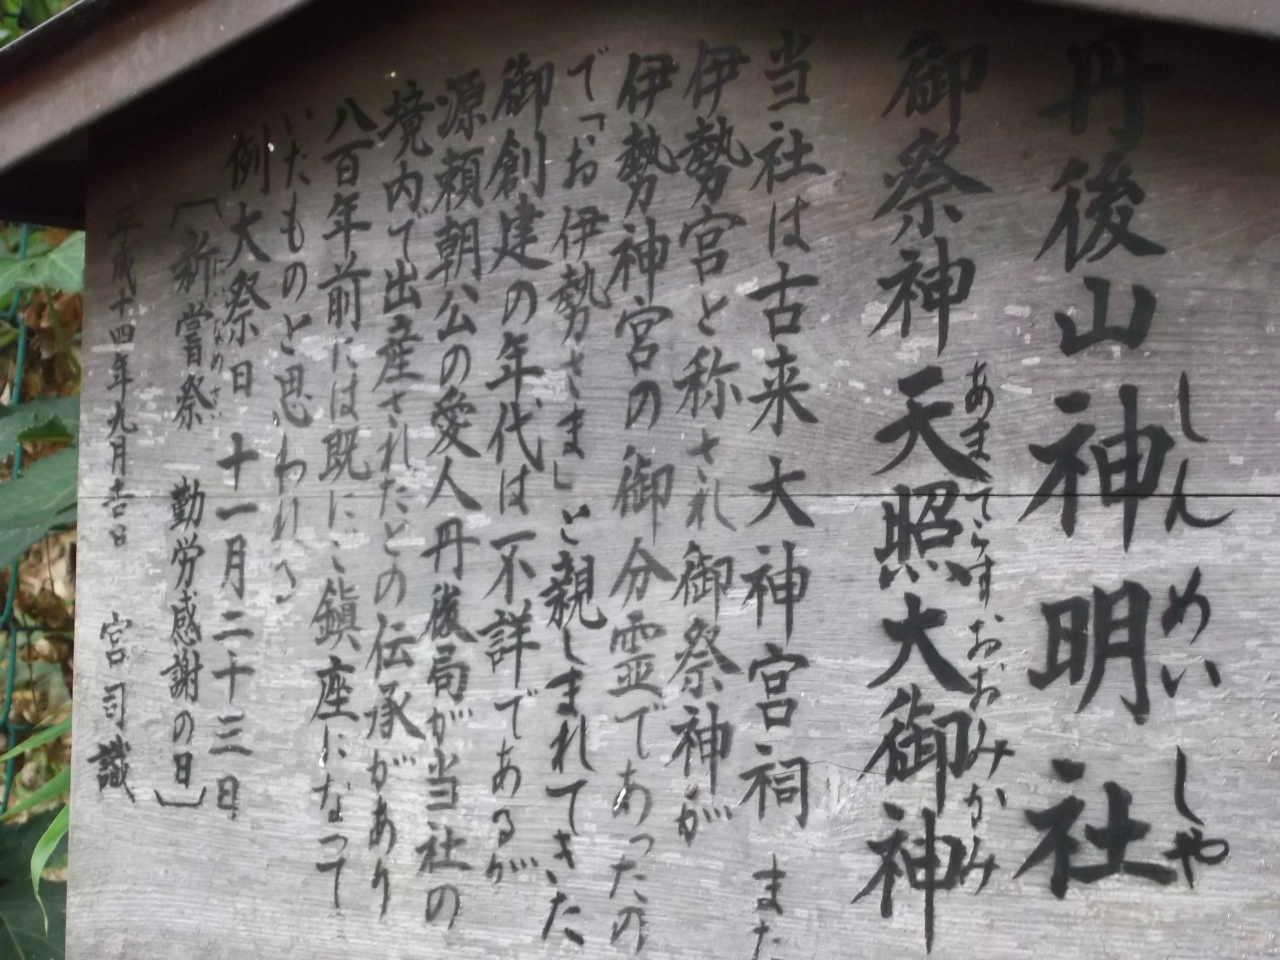 丹後山神明社
しんめいしゃ
御祭神 天照大御神
あまてらすおおみかみ
当社は古来大神宮祠 また
伊勢宮と称され御祭神が
伊勢神宮の御分霊であったの
で「お伊勢さま」と親しまれてきた
御創建の年代は不詳であるが
源頼朝公の愛人丹後局が当社の
境内で出産されたとの伝承があり
八百年前には既にこゝ鎮座になって
いたものと思われる
例大祭日 十一月二十三日
にいなめさい
〔新嘗祭 勤労感謝の日〕
平成十四年九月吉日 宮司識